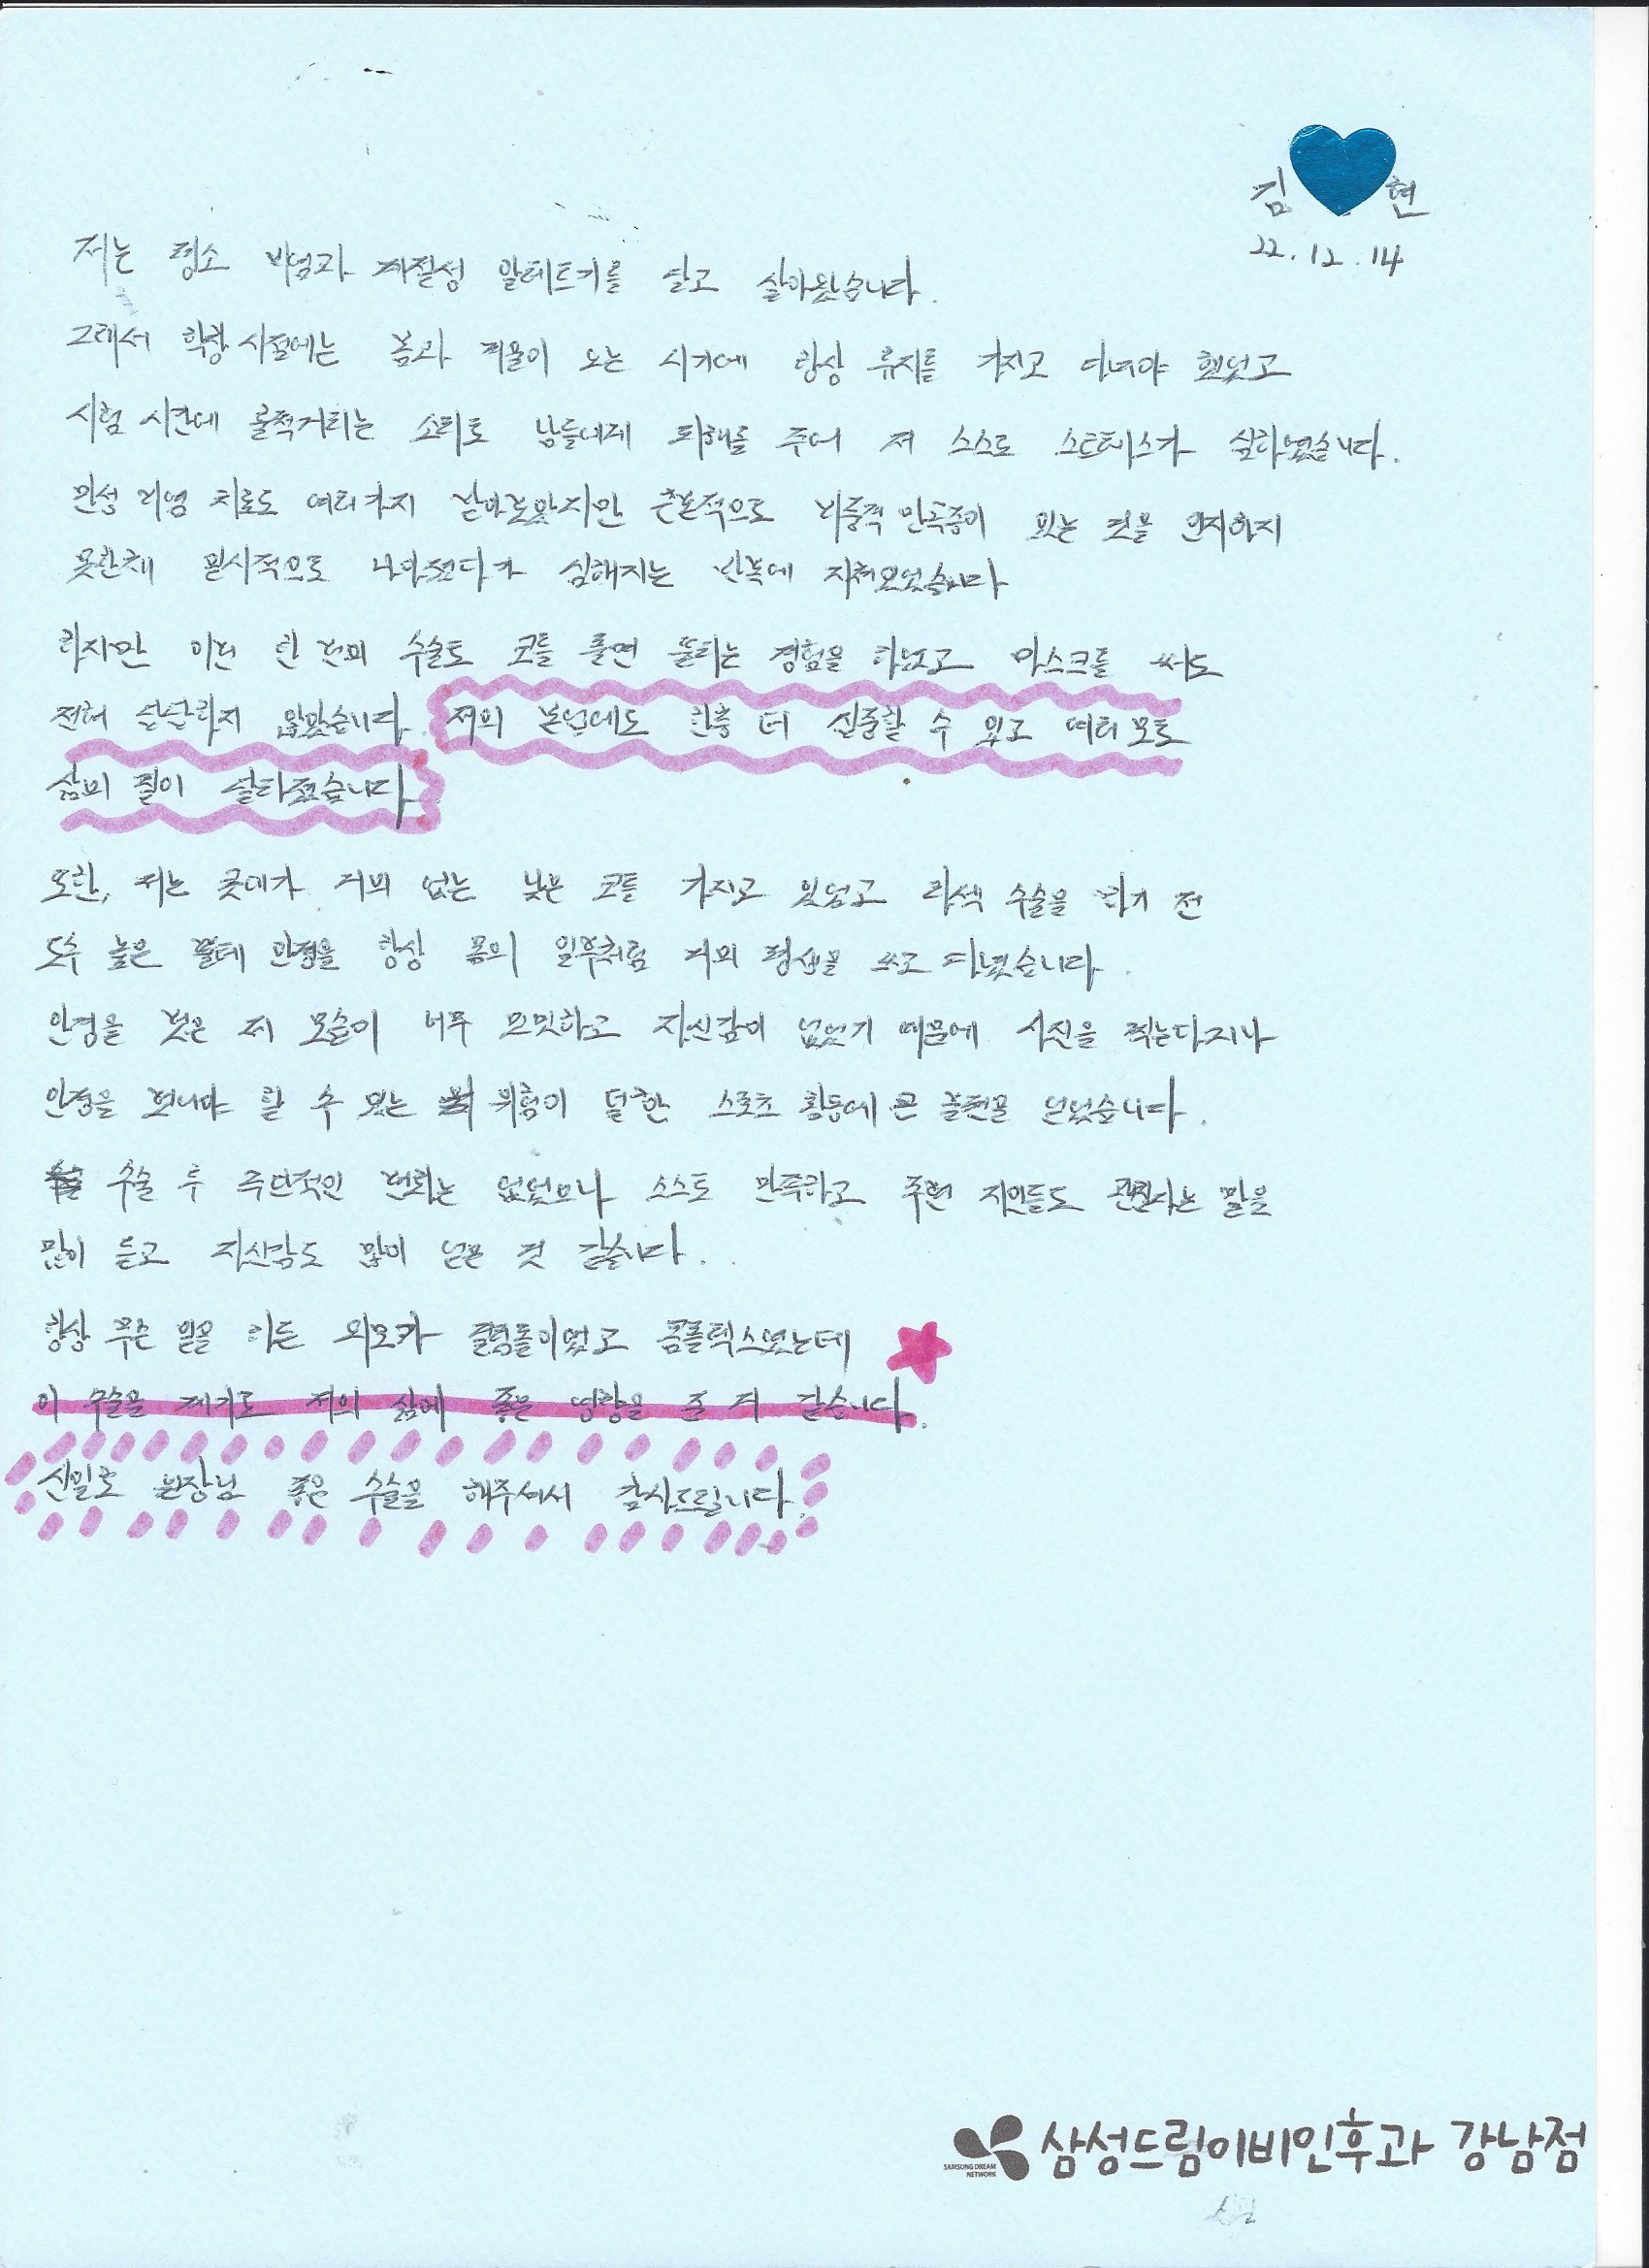 김 현
22.12.14
저는 평소 비염과 계절성 알레르기를 달고 살아왔습니다.
그래서 학창시절에는 봄과 겨울이 오는 시기에 항상 휴지를 가지고 다녀야 했었고
시험 시간에 훌쩍거리는 소리로 남들에게 피해를 주어 저 스스로 스트레스가 심하였습니다.
만성 비염 치료도 여러가지 받아보았지만 근본적으로 비중격 만곡증이 있는 것을 인지하지
못한채 일시적으로 나아졌다가 심해지는 반복에 지쳐있었습니다
하지만 이번 한 번의 수술로 코를 풀면 뚫리는 경험을 하였고 마스크를 써도
전혀 답답하지 않았습니다. 저의 본업에도 한층 더 집중할 수 있고 여러모로
삶의 질이 달라졌습니다.
또한, 저는 콧대가 거의 없는 낮은 코를 가지고 있었고 라섹 수술을 하기 전
도수 높은 뿔테 안경을 항상 몸의 일부처럼 거의 평생을 쓰고 다녔습니다.
안경을 벗은 제 모습이 너무 밋밋하고 자신감이 없었기 때문에 사진을 찍는다거나
안경을 벗어야 할 수 있는 위험이 덜한 스포츠 활동에 큰 불편을 겪었습니다.
수술 후 극단적인 변화는 없었으나 스스로 만족하고 주변 지인들도 괜찮다는 말을
많이 듣고 자신감도 많이 얻은 것 같습니다.
항상 무슨 일을 하든 외모가 걸림돌이었고 콤플렉스였는데
이 수술을 계기로 저의 삶에 좋은 영향을 준 거 같습니다.
신일호 원장님 좋은 수술을 해주셔서 감사드립니다.
SAMSUNG DREAM NETWORK
삼성드림이비인후과 강남점